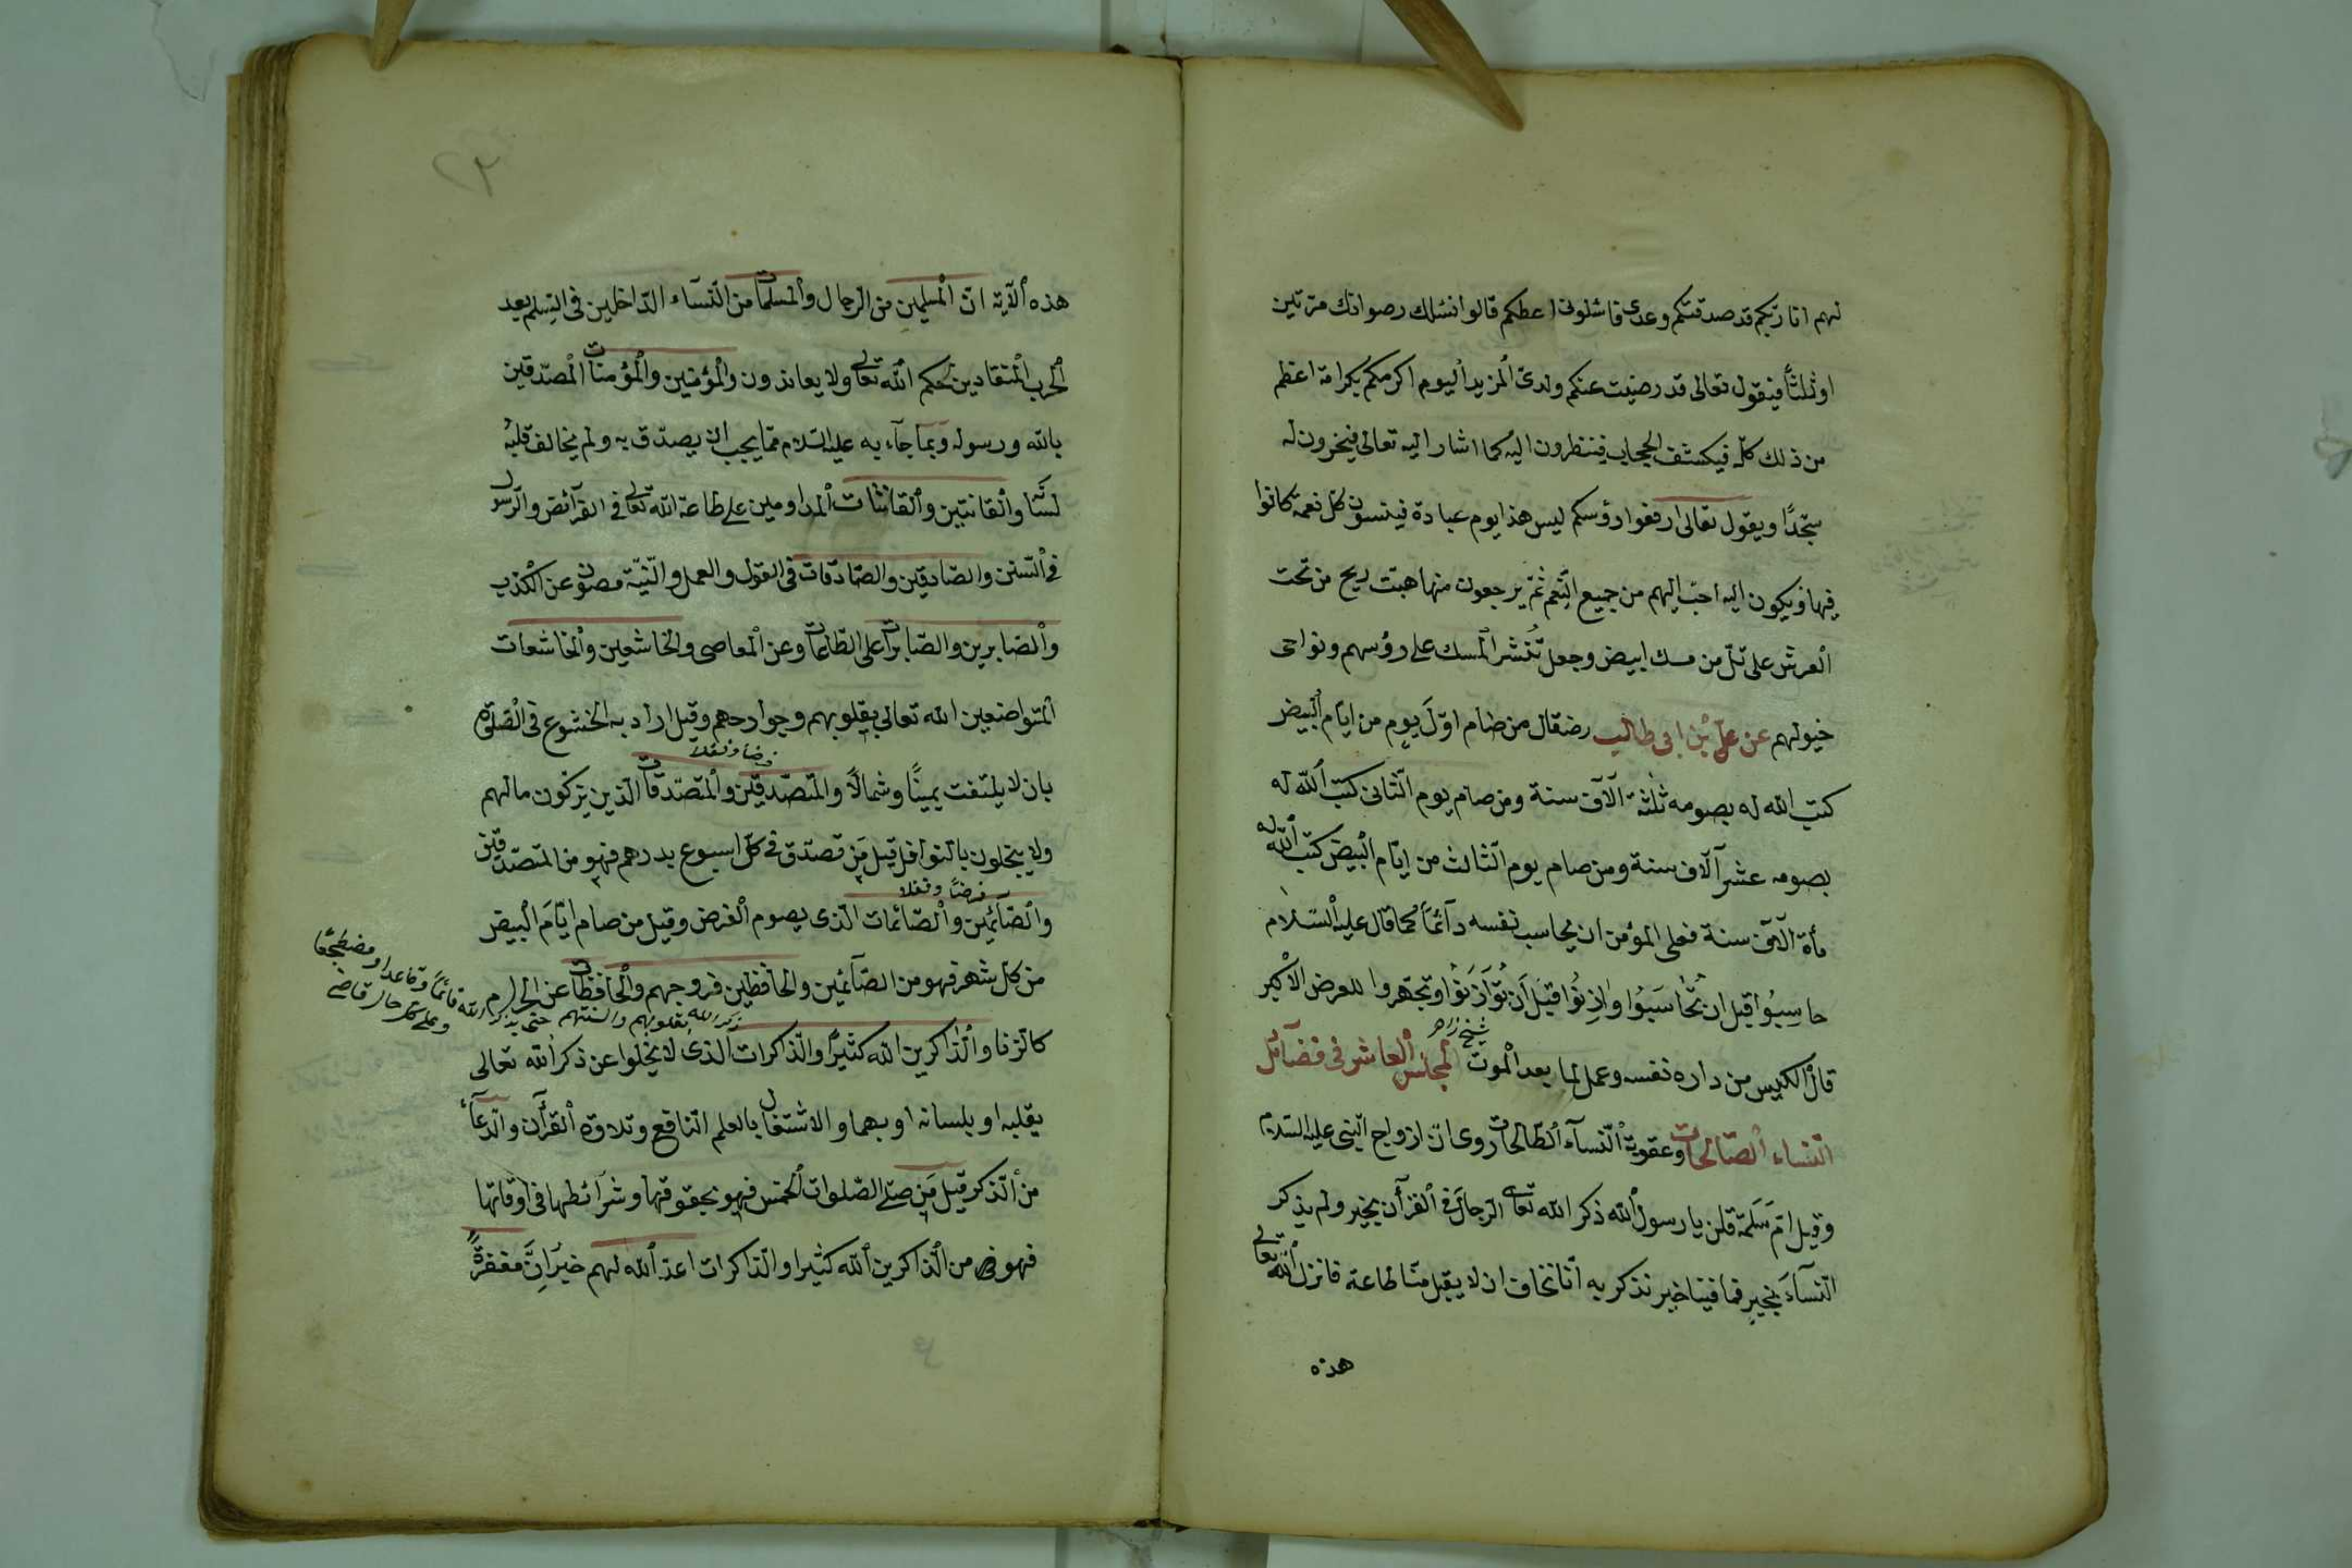 لهم انا ربكم قد صدقتكم وعدى فاسئلونى اعطكم قالوا نسئلك رضوانك مرتين
او ثلثاً فيقول تعالى قد رضيت عنكم ولدىّ المزيد اليوم اكرمكم بكرامة اعظم
من ذلك كلّه فيكشف الحجاب فينظرون اليه كما اشار اليه تعالى فيخرون له
سجّدًا ويقول تعالى ارفعوا رؤسكم ليس هذا يوم عبادة فينسون كل نعمة كانوا
فيها ويكون اليه احبّ اليهم من جميع النّعم ثمّ يرجعون منها هبّت ريح من تحت
العرش على تلّ من مسك ابيض وجعل تُنشر المسك على رؤسهم ونواحى
خيولهم عن على بن ابى طالب رض قال من صام اوّلَ يوم من ايّام البيض
كتب الله له بصومه ثلثة آلاف سنة ومن صام يوم الثّانى كتب الله له
بصومه عشر آلاف سنة ومن صام يوم الثّالث من ايّام البيض كتب الله له
مأة آلاف سنة فعلى المؤمن ان يحاسب نفسه دآئماً كما قال عليه السّلام
حاسِبُوا قبل ان تُحاسَبُوا واذِنُوا قبْلَ اَن تُوَاذَنَوُا وتجهّروا للعرض الاكبر
شيخ زاده
قال الكيس من داره نفسه وعمل لما بعد الموت المجلس العاشر فى فضآئل
النّساء الصّالحات وعقوبة النّسآء الطّالحات روى انّ ازواج النّبى عليه السّلام
وقيل امّ سَلمة قلن يا رسول الله ذكر الله تعالى الرجالَ فى القرأن بخير ولم يذكر
النّسآءَ بخيرٍ فما فينا خير نذكر به انّا نخاف ان لا يقبل منّا طاعة فانزل الله تعالى
هذه
هذه الآية انّ المسلمين من الرجال والمسلمات من النّسآء الدّاخلين فى السّلم بعد
الحرب المنقادين لحكم الله تعالى ولا يعاندون والمؤمنين والمؤمنات المصدّقين
بالله ورسوله وبما جآء به عليه السّلام ممّا يجب ان يصدّق به ولم يخالف قلبُه
لسَانَه والقانتين والقانتات المداومين على طاعة الله تعالى فى الفرآئض والرّسول
فى السّنن والصّادقين والصّادقات فى القول والعمل والنّيّة مصون عن الكذب
والصّابرين والصّابرات على الطّاعات وعن المعاصى والخاشعين والخاشعات
المتواضعين الله تعالى بقلوبهم وجوارحهم وقيل اراد به الخشوع فى الصّلوة
فرضا ونفلا
بان لا يلتفت يمينًا وشمالاً والمتصّدقين والمتصّدقات الّذين يزكون مالهم
ولا يبخلون بالنوافل قيل مَن تصدّق فى كلّ اسبوع بدرهم فهو من المتصّدقين
فرضاً ونفلا
والصّآئمين والصّائمات الّذى يصوم الفرض وقيل من صام ايّامَ البيض
من كلّ شهر فهو من الصّآئمين والحافظين فروجهم والحافظات عن الحرام
ذكر الله بقلوبهم والسنتهم حتى يذكر الله قائماً وقاعدا ومضطجعًا
وعلى كل حال قاضى
كالزنا والذّاكرين الله كثيرًا والذّاكرات الذى لا يخلوا عن ذكر الله تعالى
بقلبه او بلسانه او بهما والاشتغال بالعلم النّافع وتلاوة القرأن والدّعآء
من الذّكر قيل مَن صلى الصّلوات الخمس فهو بحقوقها وشرآئطها فى اوقاتها
فهو من الذّاكرين الله كثيرا والذّاكرات اعدّ الله لهم خيرَانّ مغفرةً